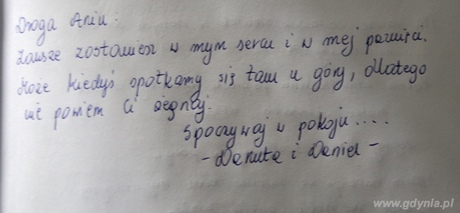 Droga Aniu:
Zawsze zostaniesz w mym sercu i w mej pamięci.
Może kiedyś spotkamy się tam u góry, dlatego
nie powiem Ci żegnaj.
Spoczywaj w pokoju....
- Danuta i Daniel -
www.gdynia.pl